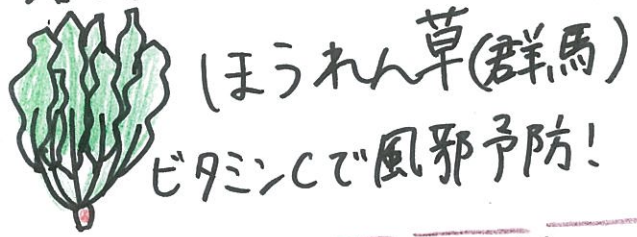 ほうれん草(群馬)
ビタミンCで風邪予防!